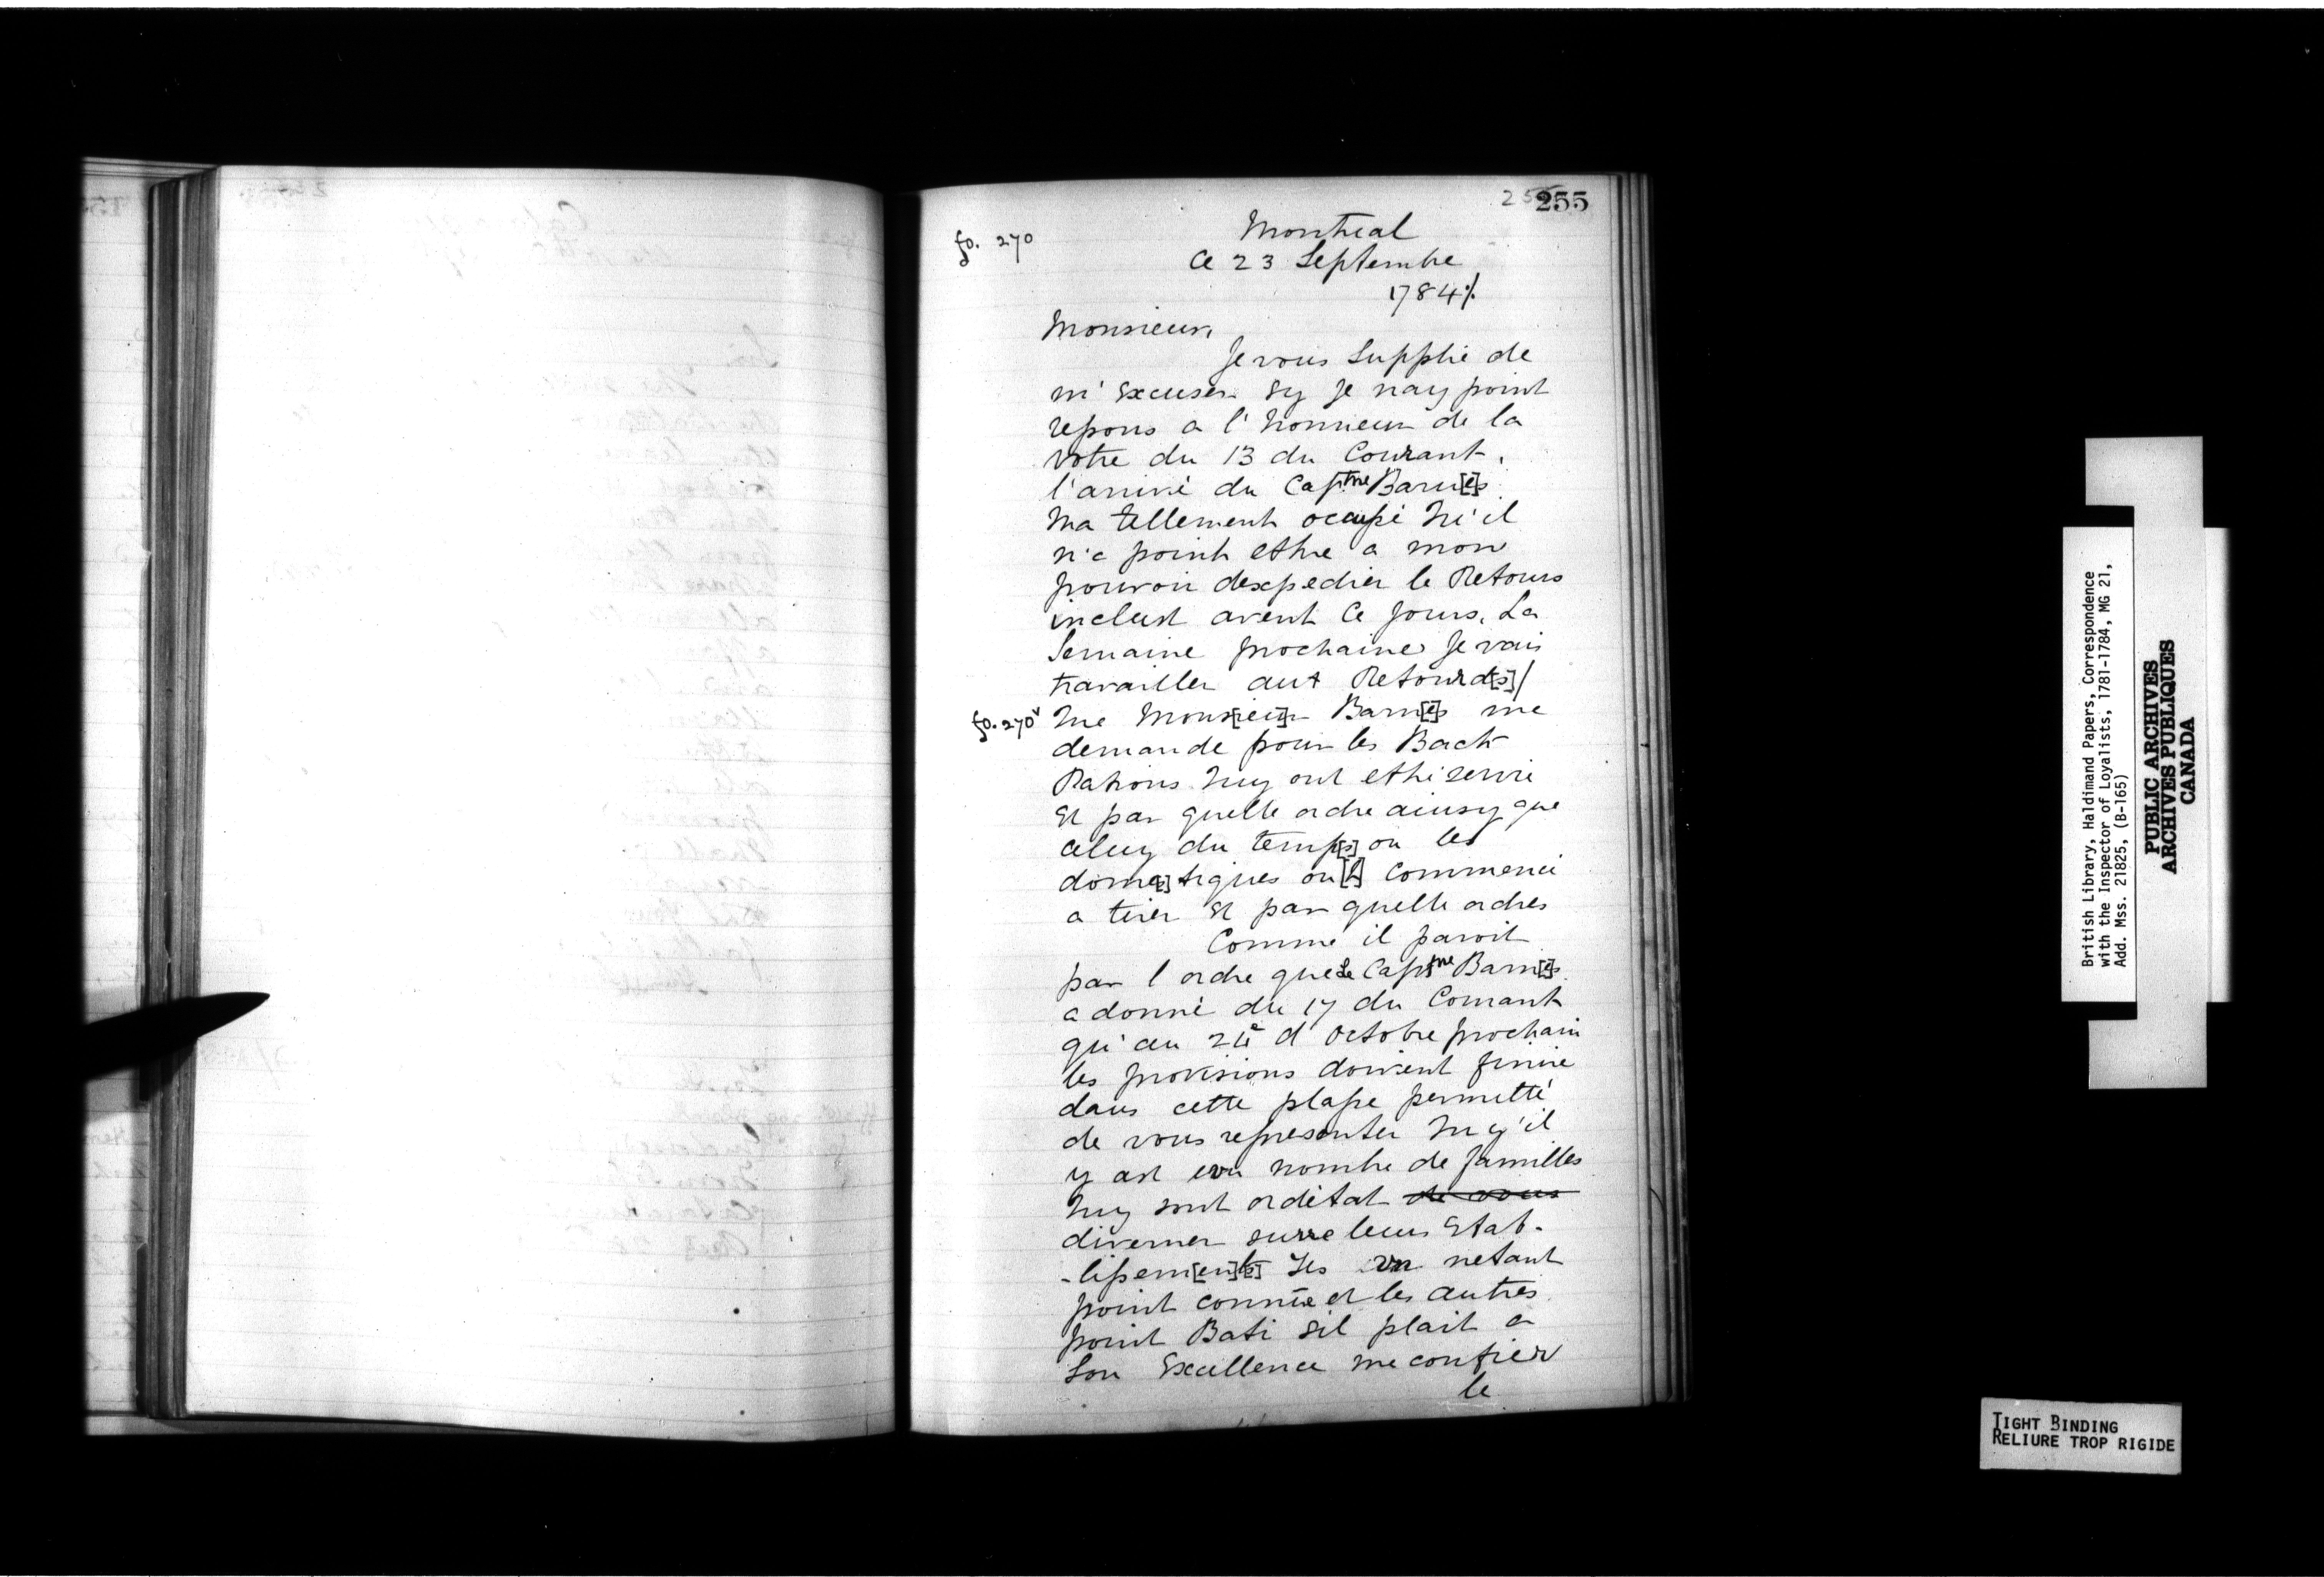 255
fo. 270
Montreal
Ce 23 Septembre
1784 ./.
Monsieur,
Je vous Supplie de
m' Excuser Sy Je nay point
repons a l'honneur de la
votre du 13 du Courant,
l'arrivé du Captne Barn[e]s
ma tellement occupé
n'a point ethre a mon
pouvoir dexpedier le Retours
inclust avent Ce Jours. La
Semaine prochaine Je vais
travailler aut Retourd[s]/
fo. 270v
Monsieur Barn[e]s me
demande pour les Back
Rations ont ethé servi
Et par quelle ordre ainsy que
celuy du temp[s] ou les
dome[s]tiques on[t] Commencé
a tirer Et par quelle ordres
Comme il paroit
par l ordre que Le Captne Barn[e]s
a donné du 17 du Courant
qu'au 24e d Octobre prochain
les provisions doivent finire
dans cette plasse permetté
de vous representer
y ast eun nombre de familles
sont ordétat de vous
diverner surre leurs Etab-
-lissem[en]t[s] Les un netant
point connue et les autres
point Bati sil plait a
Son Excellence me confier
le
British Library, Haldimand Papers, Correspondence
with the Inspector of Loyalists, 1781-1784, MG 21,
Add. Mss. 21825, (B-165)
PUBLIC ARCHIVES
ARCHIVES PUBLIQUES
CANADA
TIGHT BINDING
RELIURE TROP RIGIDE